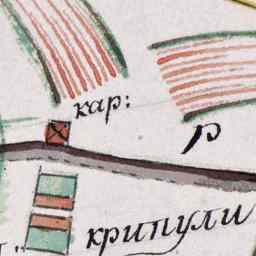 кар:
р
крипули